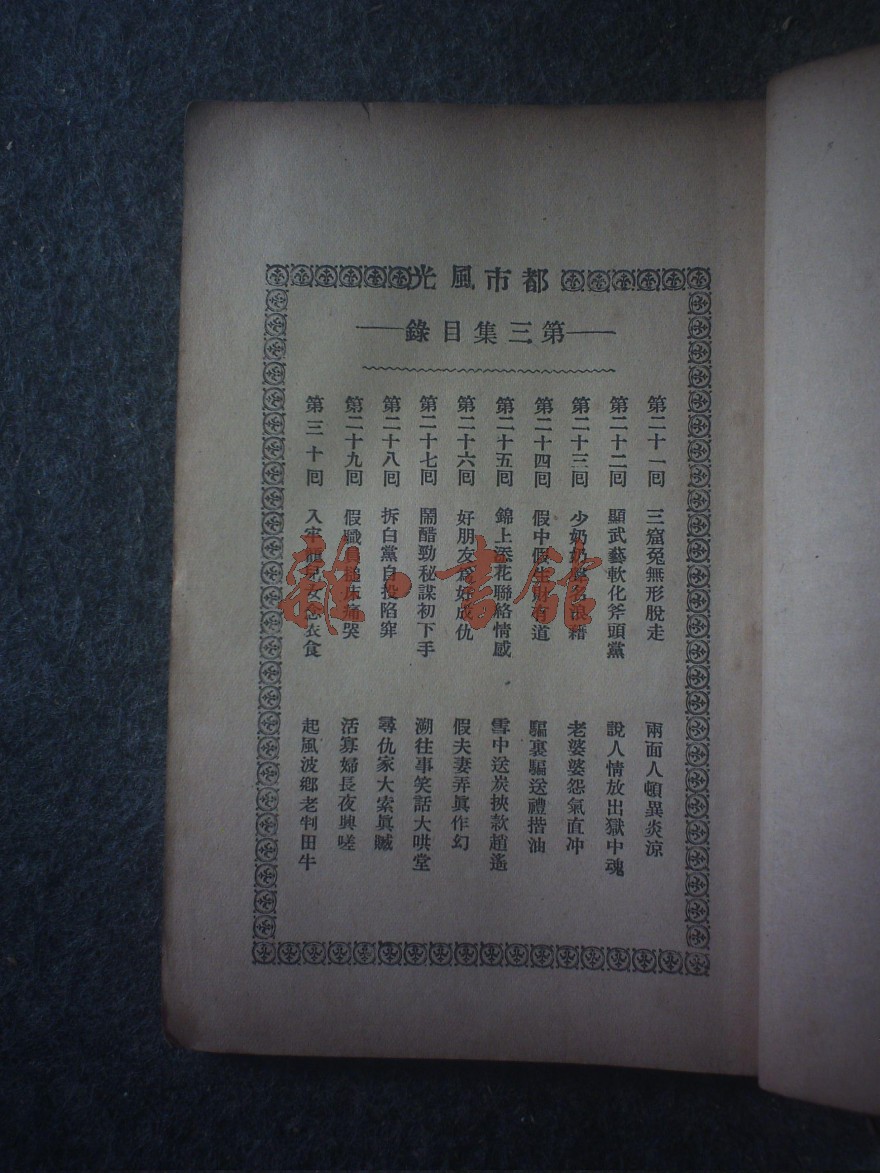 都市風光
第三集目錄
第二十一囘 三窟兔無形脫走 兩面人頓異炎涼
第二十二囘 顯武藝軟化斧頭黨 說人情放出獄中魂
第二十三囘 少奶奶 名浪藉 老婆婆怨氣直冲
第二十四囘 假中假生財有道 騙裏騙送禮揩油
第二十五囘 錦上添花聯絡情感 雪中送炭挾款趙遙
第二十六囘 好朋友爲好成仇 假夫妻弄眞作幻
第二十七囘 鬧醋勁秘謀初下手 溯往事笑話大哄堂
第二十八囘 拆白黨自投陷穽 尋仇家大索眞贓
第二十九囘 假職員搥床痛哭 活寡婦長夜興嗟
第三十囘 入牢 兒女念衣食 起風波鄉老判田牛
雜·書館